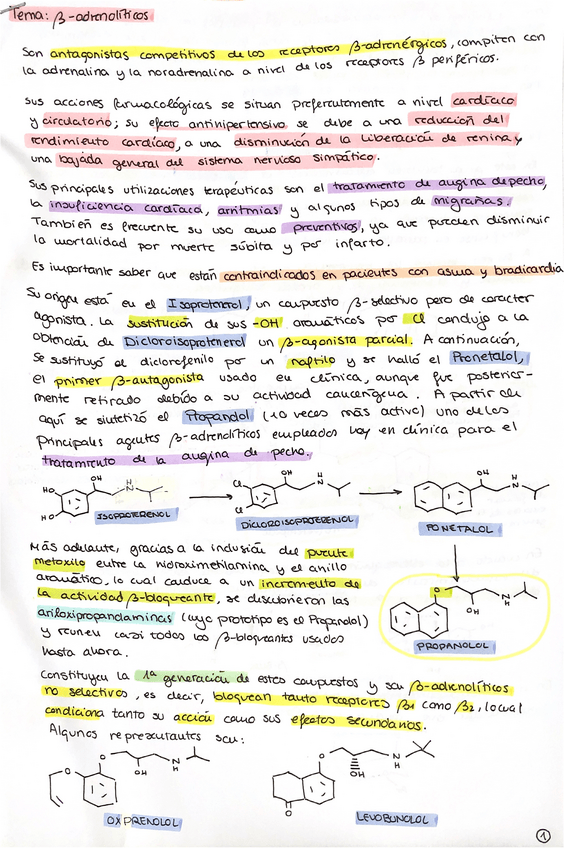 Tema: β-adrenolíticos
Son antagonistas competitivos de los receptores β-adrenérgicos, compiten con
la adrenalina y la noradrenalina a nivel de los receptores β periféricos.
Sus acciones farmacológicas se situan preferentemente a nivel cardíaco
y circulatorio; su efecto antihipertensivo se debe a una reducción del
rendimiento cardíaco, a una disminución de la liberación de renina y
una bajada general del sistema nervioso simpático.
Sus principales utilizaciones terapéuticas son el tratamiento de angina de pecho,
la insuficiencia cardíaca, arritmias y algunos tipos de migrañas.
También es frecuente su uso como preventivos, ya que pueden disminuir
la mortalidad por muerte súbita y por infarto.
Es importante saber que están contraindicados en pacientes con asma y bradicardia
Su origen está en el Isoproterenol, un compuesto β-selectivo pero de caracter
agonista. La sustitución de sus -OH aromáticos por Cl condujo a la
obtención de Dicloroisoproterenol un β-agonista parcial. A continuación,
se sustituyó el diclorofenilo por un naftilo y se halló el Pronetalol,
el primer β-antagonista usado en clínica, aunque fue posterior-
mente retirado debido a su actividad cancerígena. A partir de
aquí se sintetizó el Propanolol (10 veces más activo) uno de los
principales agentes β-adrenolíticos empleados hoy en clínica para el
tratamiento de la angina de pecho.
HO HO OH H N
ISOPROTERENOL
Cl Cl OH H N
DICLOROISOPROTERENOL
OH H N
PONETALOL
Más adelante, gracias a la inclusión del puente
metoxilo entre la hidroximetilamina y el anillo
aromático, lo cual conduce a un incremento de
la actividad β-bloqueante, se descubrieron las
ariloxipropanolaminas (cuyo prototipo es el Propanolol)
y reunen casi todos los β-bloqueantes usados
hasta ahora.
O OH N H
PROPANOLOL
Constituyen la 1ª generación de estos compuestos y son β-adrenolíticos
no selectivos, es decir, bloquean tanto receptores β1 como β2, lo cual
condiciona tanto su acción como sus efectos secundarios.
Algunos representantes son:
O O OH N H
OXPRENOLOL
O O OH N H
LEVOBUNOLOL
1